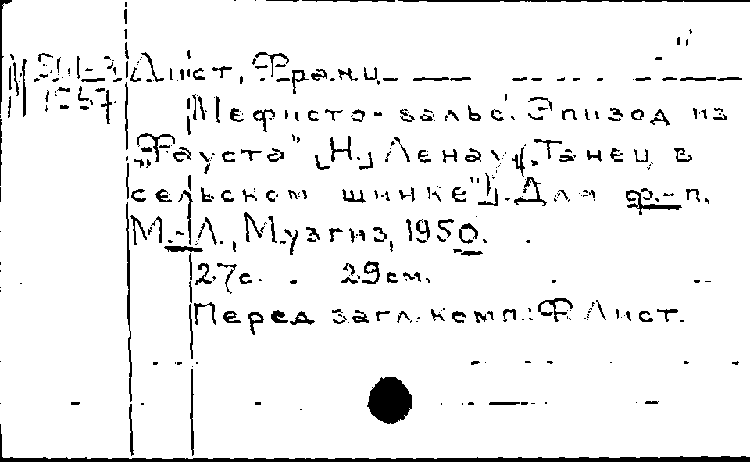 М Лист, Франц
Мефисто-вальс. Эпизод из
„Фауста" [Н.] Ленау [„Танец в
сельском шинке"]. Для ф.-п.
М.-Л., Музгиз, 1950.
27с. 29см.
Перед загл. комп.: Ф. Лист.